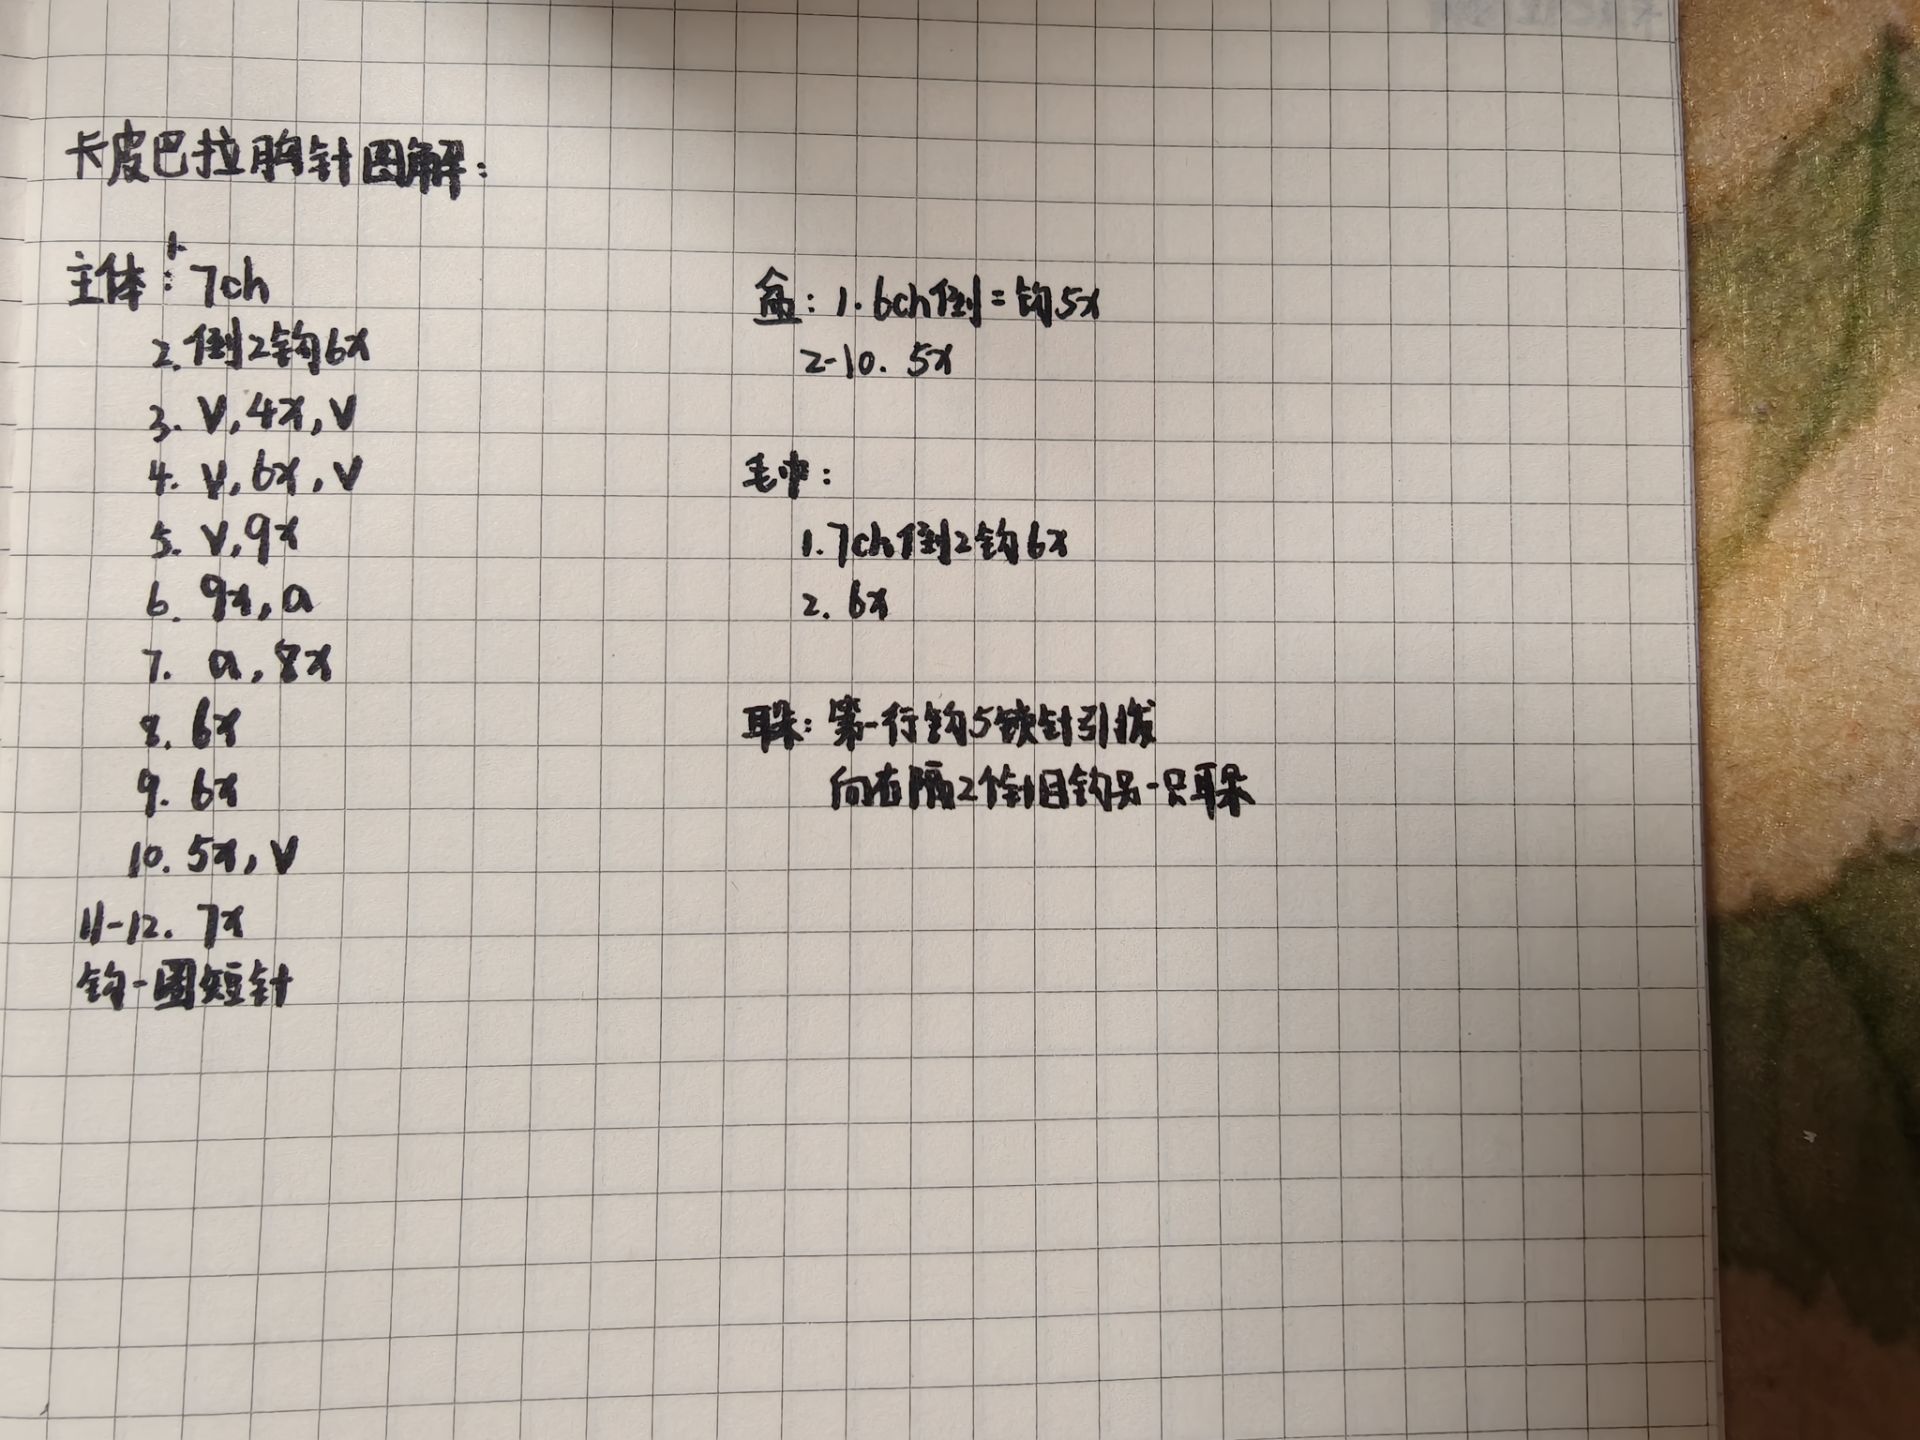 卡皮巴拉胸针图解：
主体：1. 7ch
2. 倒2钩6x
3. V, 4x, V
4. V, 6x, V
5. V, 9x
6. 9x, a
7. a, 8x
8. 6x
9. 6x
10. 5x, V
11-12. 7x
钩一圈短针
盒：1. 6ch倒二钩5x
2-10. 5x
毛巾：
1. 7ch倒2钩6x
2. 6x
耳朵：第一行钩5锁针引拔
向右隔2个针目钩另一只耳朵